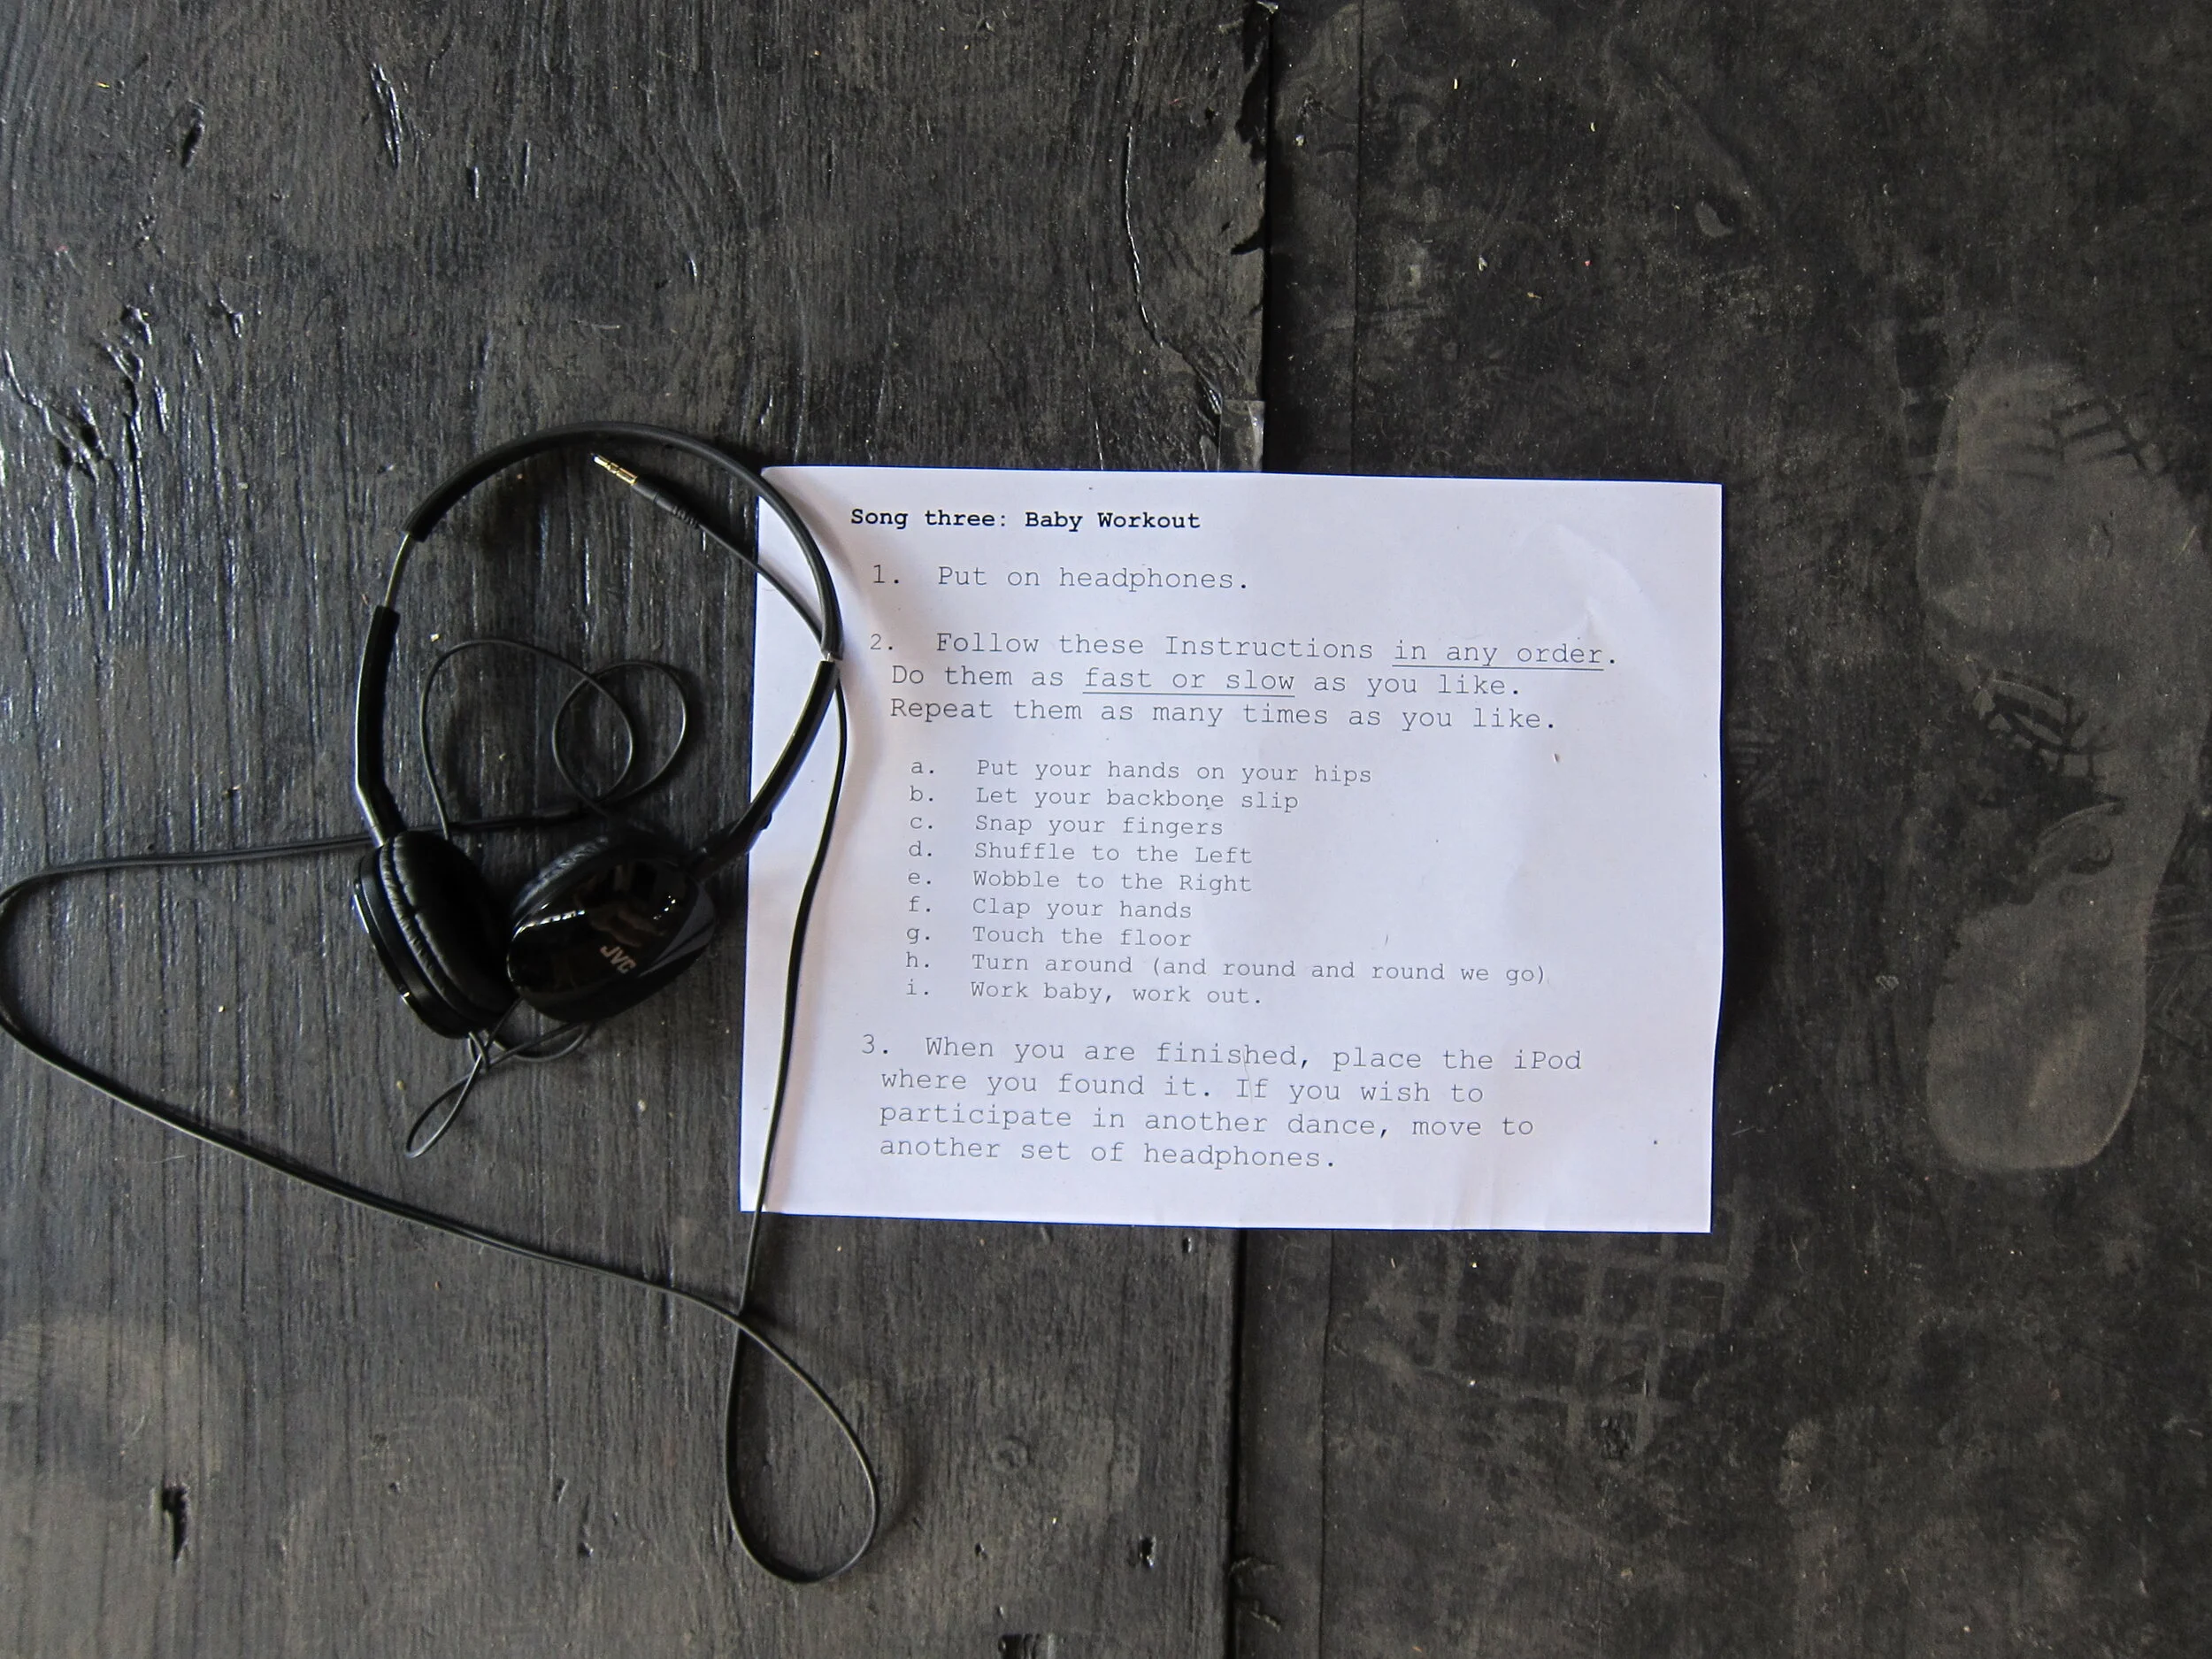 Song three: Baby Workout
1. Put on headphones.
2. Follow these Instructions in any order.
Do them as fast or slow as you like.
Repeat them as many times as you like.
a. Put your hands on your hips
b. Let your backbone slip
c. Snap your fingers
d. Shuffle to the Left
e. Wobble to the Right
f. Clap your hands
g. Touch the floor
h. Turn around (and round and round we go)
i. Work baby, work out.
3. When you are finished, place the iPod
where you found it. If you wish to
participate in another dance, move to
another set of headphones.
JVC